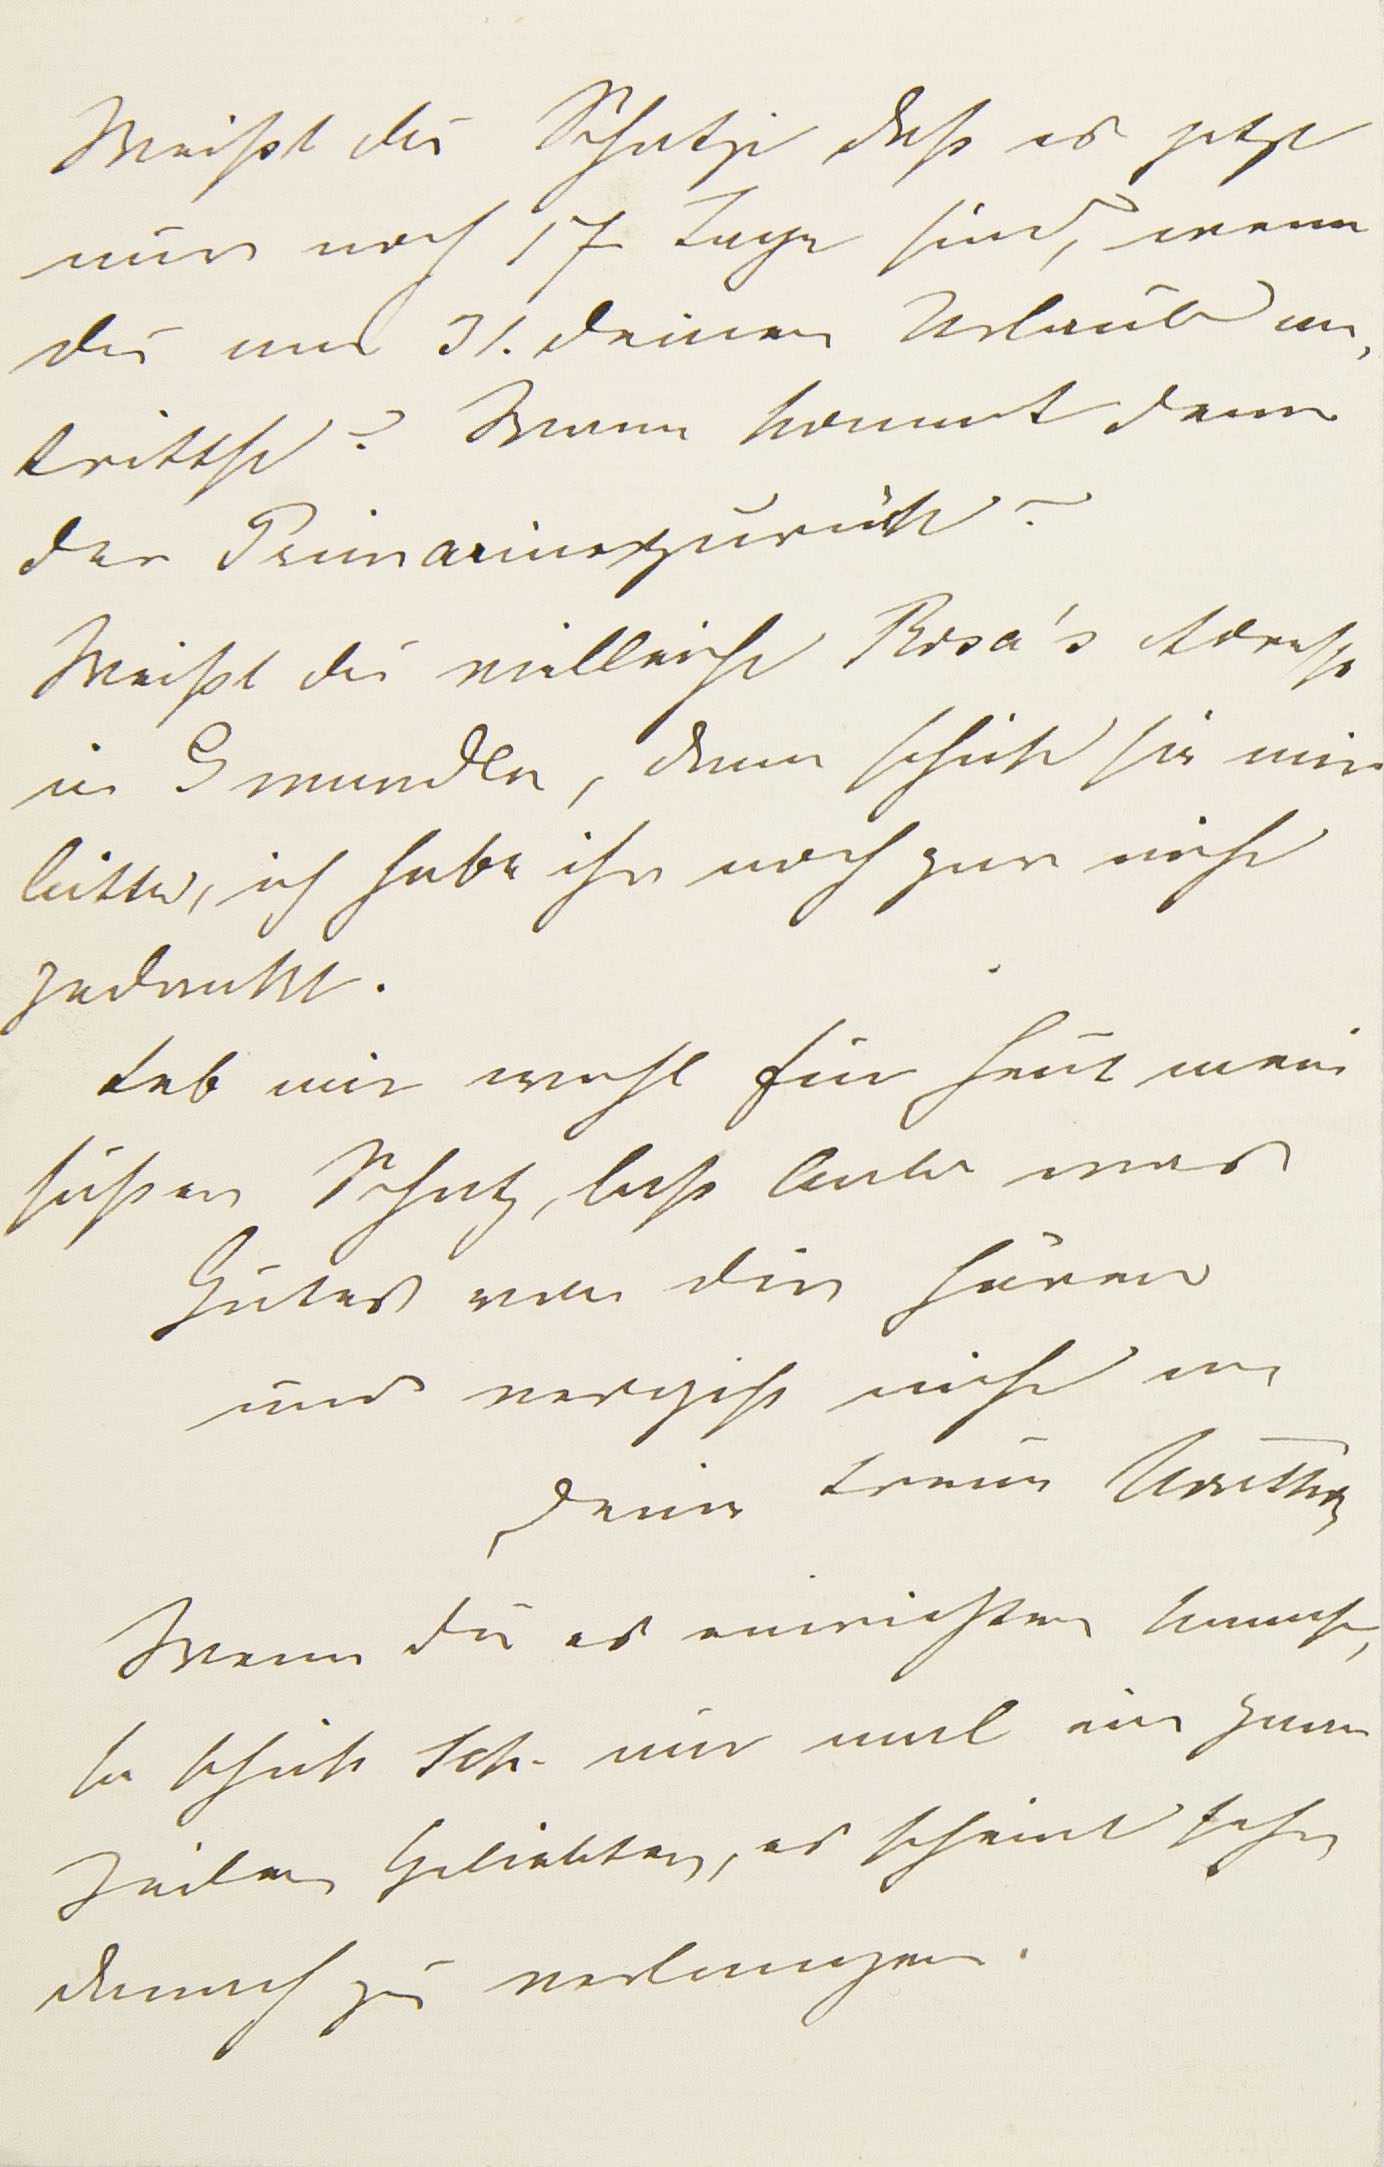 Weißt du Schatzi daß es jetzt
nur noch 17 Tage sind, wenn
du am 31. deinen Urlaub an-
trittst? Wann kommt denn
der Primarius zurück?
Weißt du vielleicht Rosa's Adresse
in Gmunden, dann schick sie mir
bitte, ich habe ihr noch gar nicht
gedankt.
Leb mir wohl für heut mein
süßer Schatz, laß bald was
Gutes von dir hören
und vergiß nicht an
deine treue
Wenn du es einrichten kannst,
so schick Sch. nur mal ein paar
Zeilen Geliebter, es scheint sehr
danach zu verlangen.